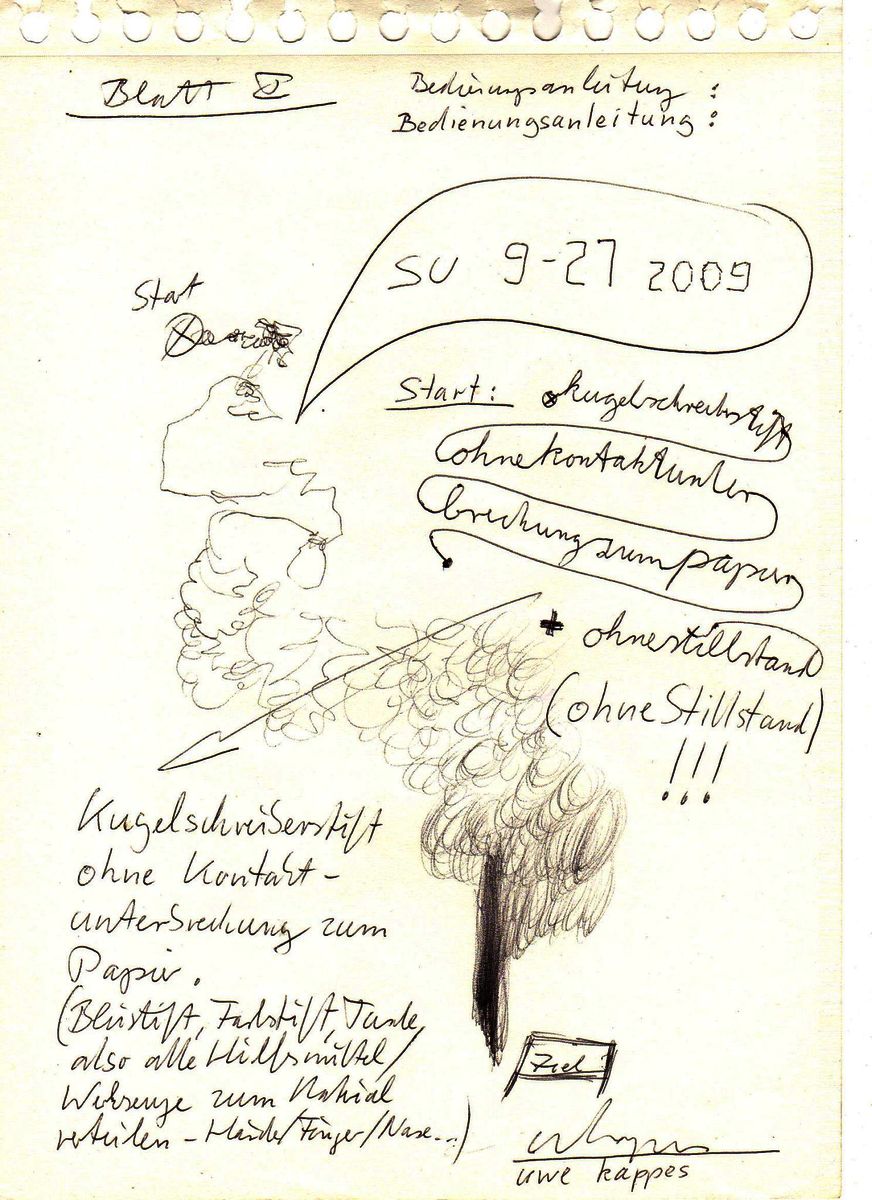 Blatt
Bedienungsanleitung :
Bedienungsanleitung :
SU 9-27 2009
Start
Start: Kugelschreiberstift
ohnekontaktunter
brechungzumpapier
+ ohnestillstand
(ohne Stillstand)
!!!
Kugelschreiberstift
ohne Kontakt-
unterbrechung zum
Papier.
(Bleistift, Farbstift, Tusche,
also alle Hilfsmittel/
Werkzeuge zum Material
verteilen - Hände/Finger/Nase...)
Ziel
uwe kappes